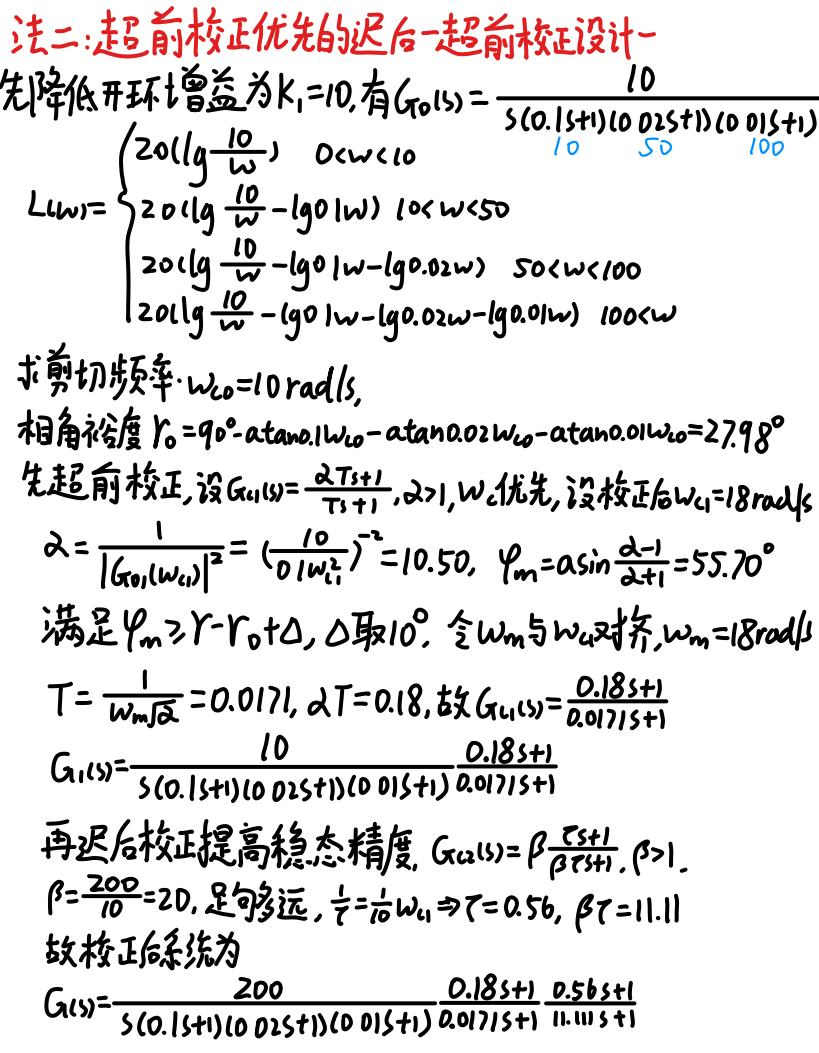 法二:超前校正优先的迟后-超前校正设计-
先降低开环增益为K₁=10,有G₀(s)=10/(s(0.1s+1)(0.02s+1)(0.01s+1))
10 50 100
L(w)={20(lg 10/w) 0<w<10
20(lg 10/w-lg0.1w) 10<w<50
20(lg 10/w-lg0.1w-lg0.02w) 50<w<100
20(lg 10/w-lg0.1w-lg0.02w-lg0.01w) 100<w
求剪切频率.w_c0=10rad/s,
相角裕度γ₀=90°-atan0.1w_c0-atan0.02w_c0-atan0.01w_c0=27.98°
先超前校正,设G_c1(s)=(αTs+1)/(Ts+1),α>1,w_c优先,设校正后w_c1=18rad/s
α=1/|G_01(w_c1)|²=(10/(0.1w_c1²))⁻²=10.50, φ_m=asin (α-1)/(α+1)=55.70°
满足φ_m≥γ-γ₀+Δ,Δ取10°. 令w_m与w_c1对齐,w_m=18rad/s
T=1/(w_m√α)=0.0171,αT=0.18,故G_c1(s)=(0.18s+1)/(0.0171s+1)
G₁(s)=10/(s(0.1s+1)(0.02s+1)(0.01s+1)) (0.18s+1)/(0.0171s+1)
再迟后校正提高稳态精度, G_c2(s)=β(τs+1)/(βτs+1),β>1.
β=200/10=20,足够多远,1/τ=1/10 w_c1⇒τ=0.56, βτ=11.11
故校正后系统为
G(s)=200/(s(0.1s+1)(0.02s+1)(0.01s+1)) (0.18s+1)/(0.0171s+1) (0.56s+1)/(11.111s+1)